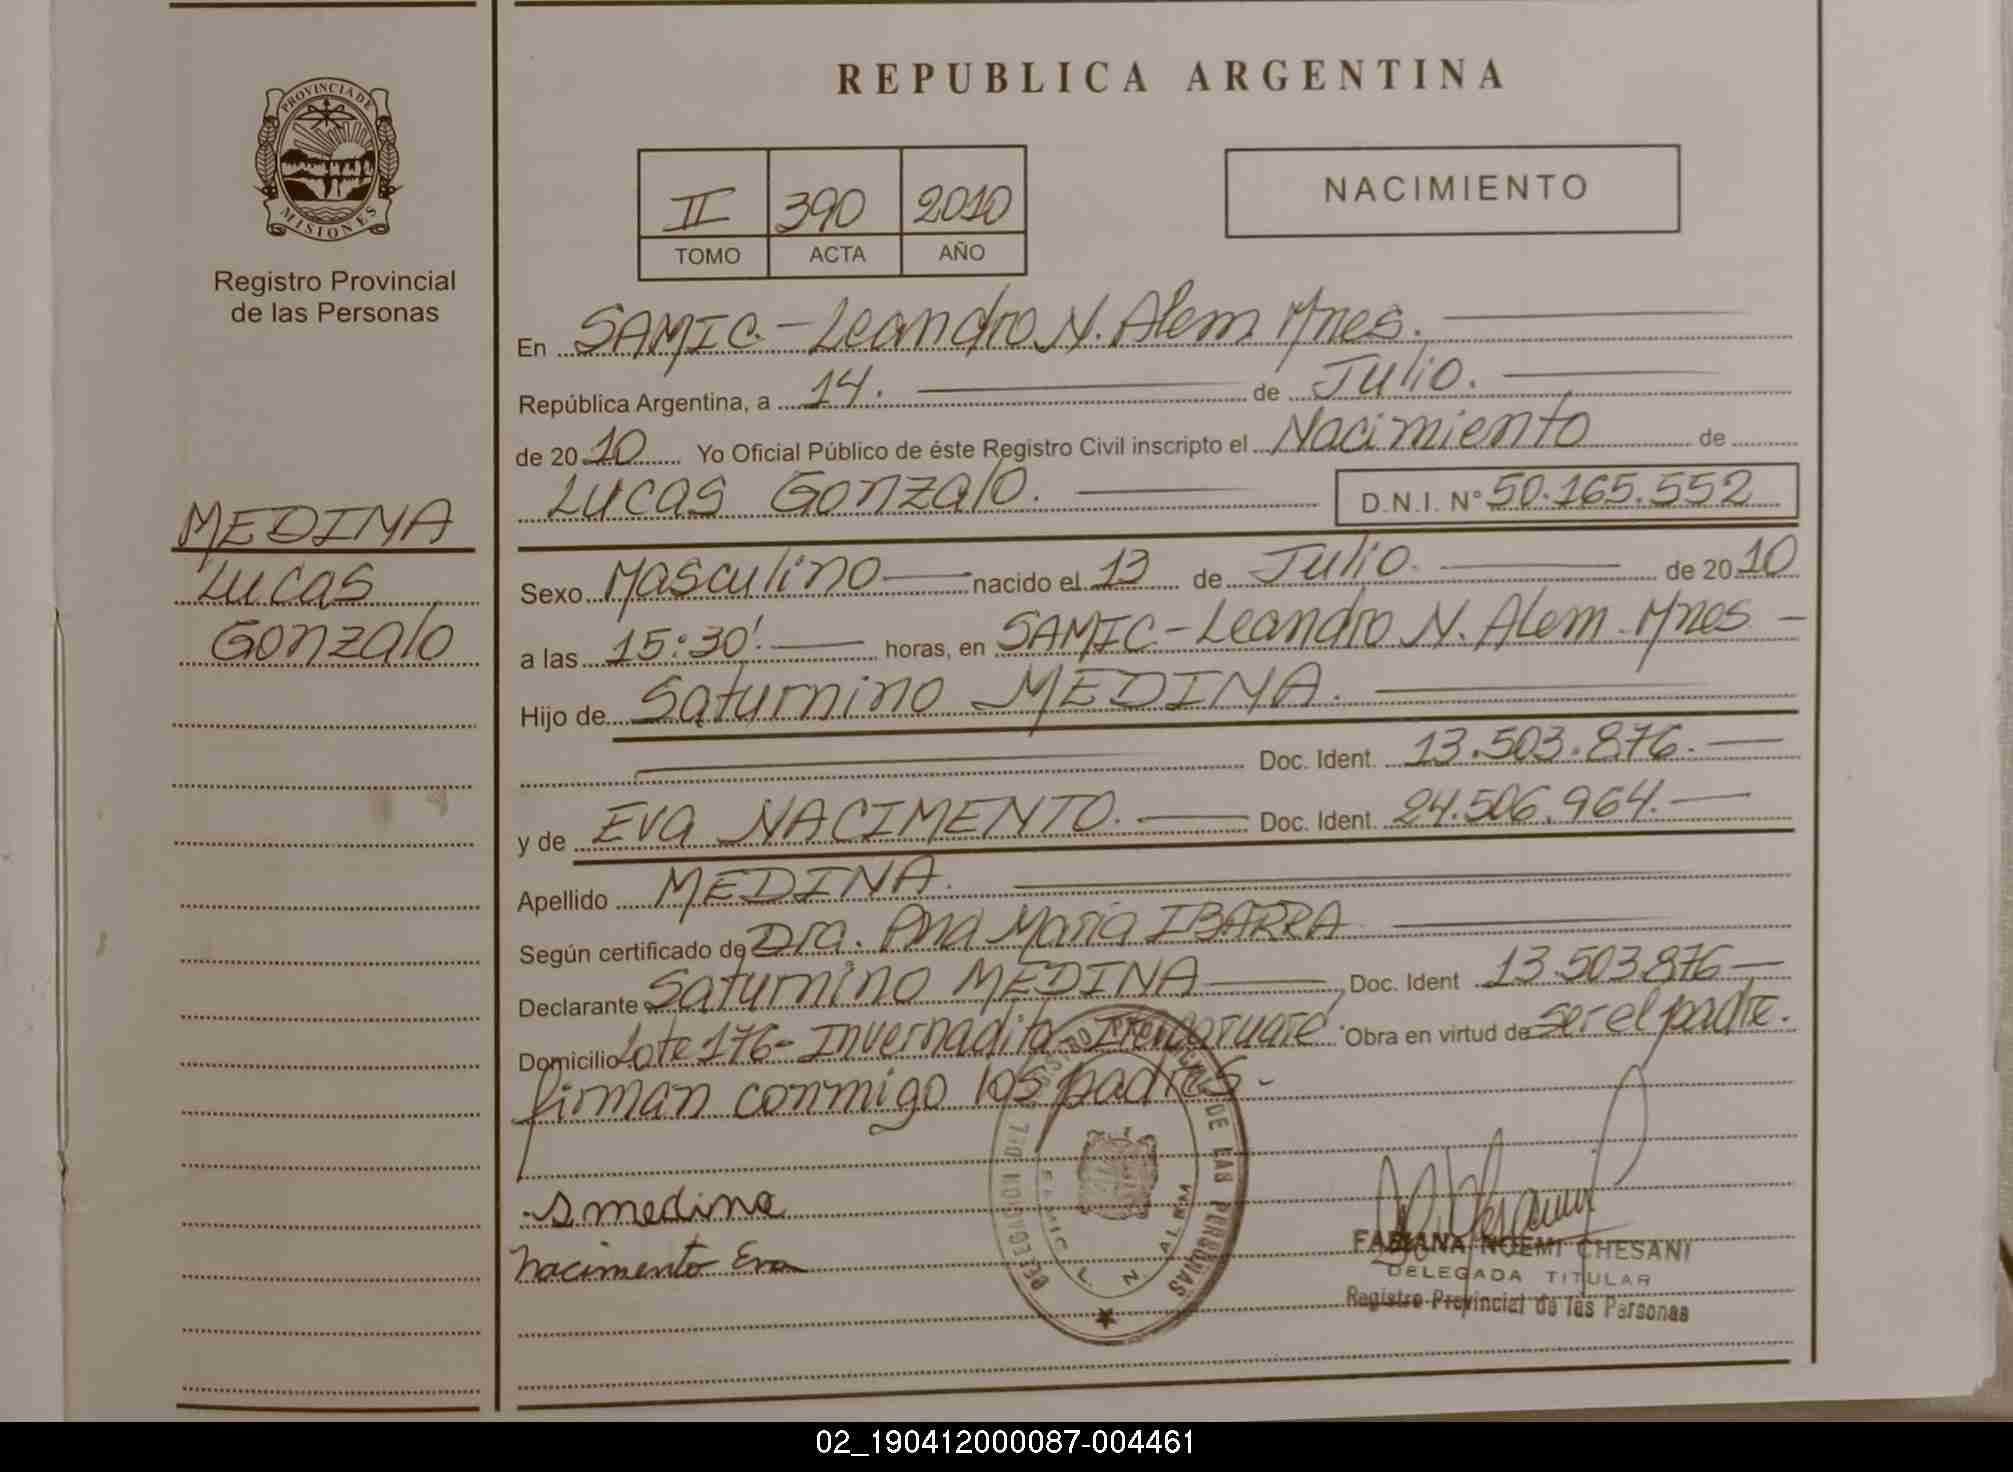 PROVINCIA DE
MISIONES
Registro Provincial
de las Personas
MEDINA
Lucas
Gonzalo
REPUBLICA ARGENTINA
II 390 2010
TOMO ACTA AÑO
NACIMIENTO
En SAMIC.-Leandro N. Alem Mnes.
República Argentina, a 14. de Julio.
de 2010 Yo Oficial Público de éste Registro Civil inscripto el Nacimiento de
Lucas Gonzalo. D.N.I. N° 50.165.552
Sexo Masculino nacido el 13 de Julio. de 2010
a las 15:30'. horas, en SAMIC-Leandro N. Alem. Mnes -
Hijo de Saturnino MEDINA.
Doc. Ident. 13.503.876.
y de Eva NACIMENTO. Doc. Ident. 24.506.964.
Apellido MEDINA.
Según certificado de Dra. Ana María IBARRA
Declarante Saturnino MEDINA Doc. Ident 13.503.876
Domicilio Lote 176- Invernadita- Itacaruaré Obra en virtud de ser el padre.
firman conmigo los padres.-
S medina
Nacimento Eva
DELEGACION REGISTRO PROVINCIAL DE LAS PERSONAS
SAMIC L N ALEM
FABIANA NOEMI CHESANI
DELEGADA TITULAR
Registro Provincial de las Personas
02_190412000087-004461